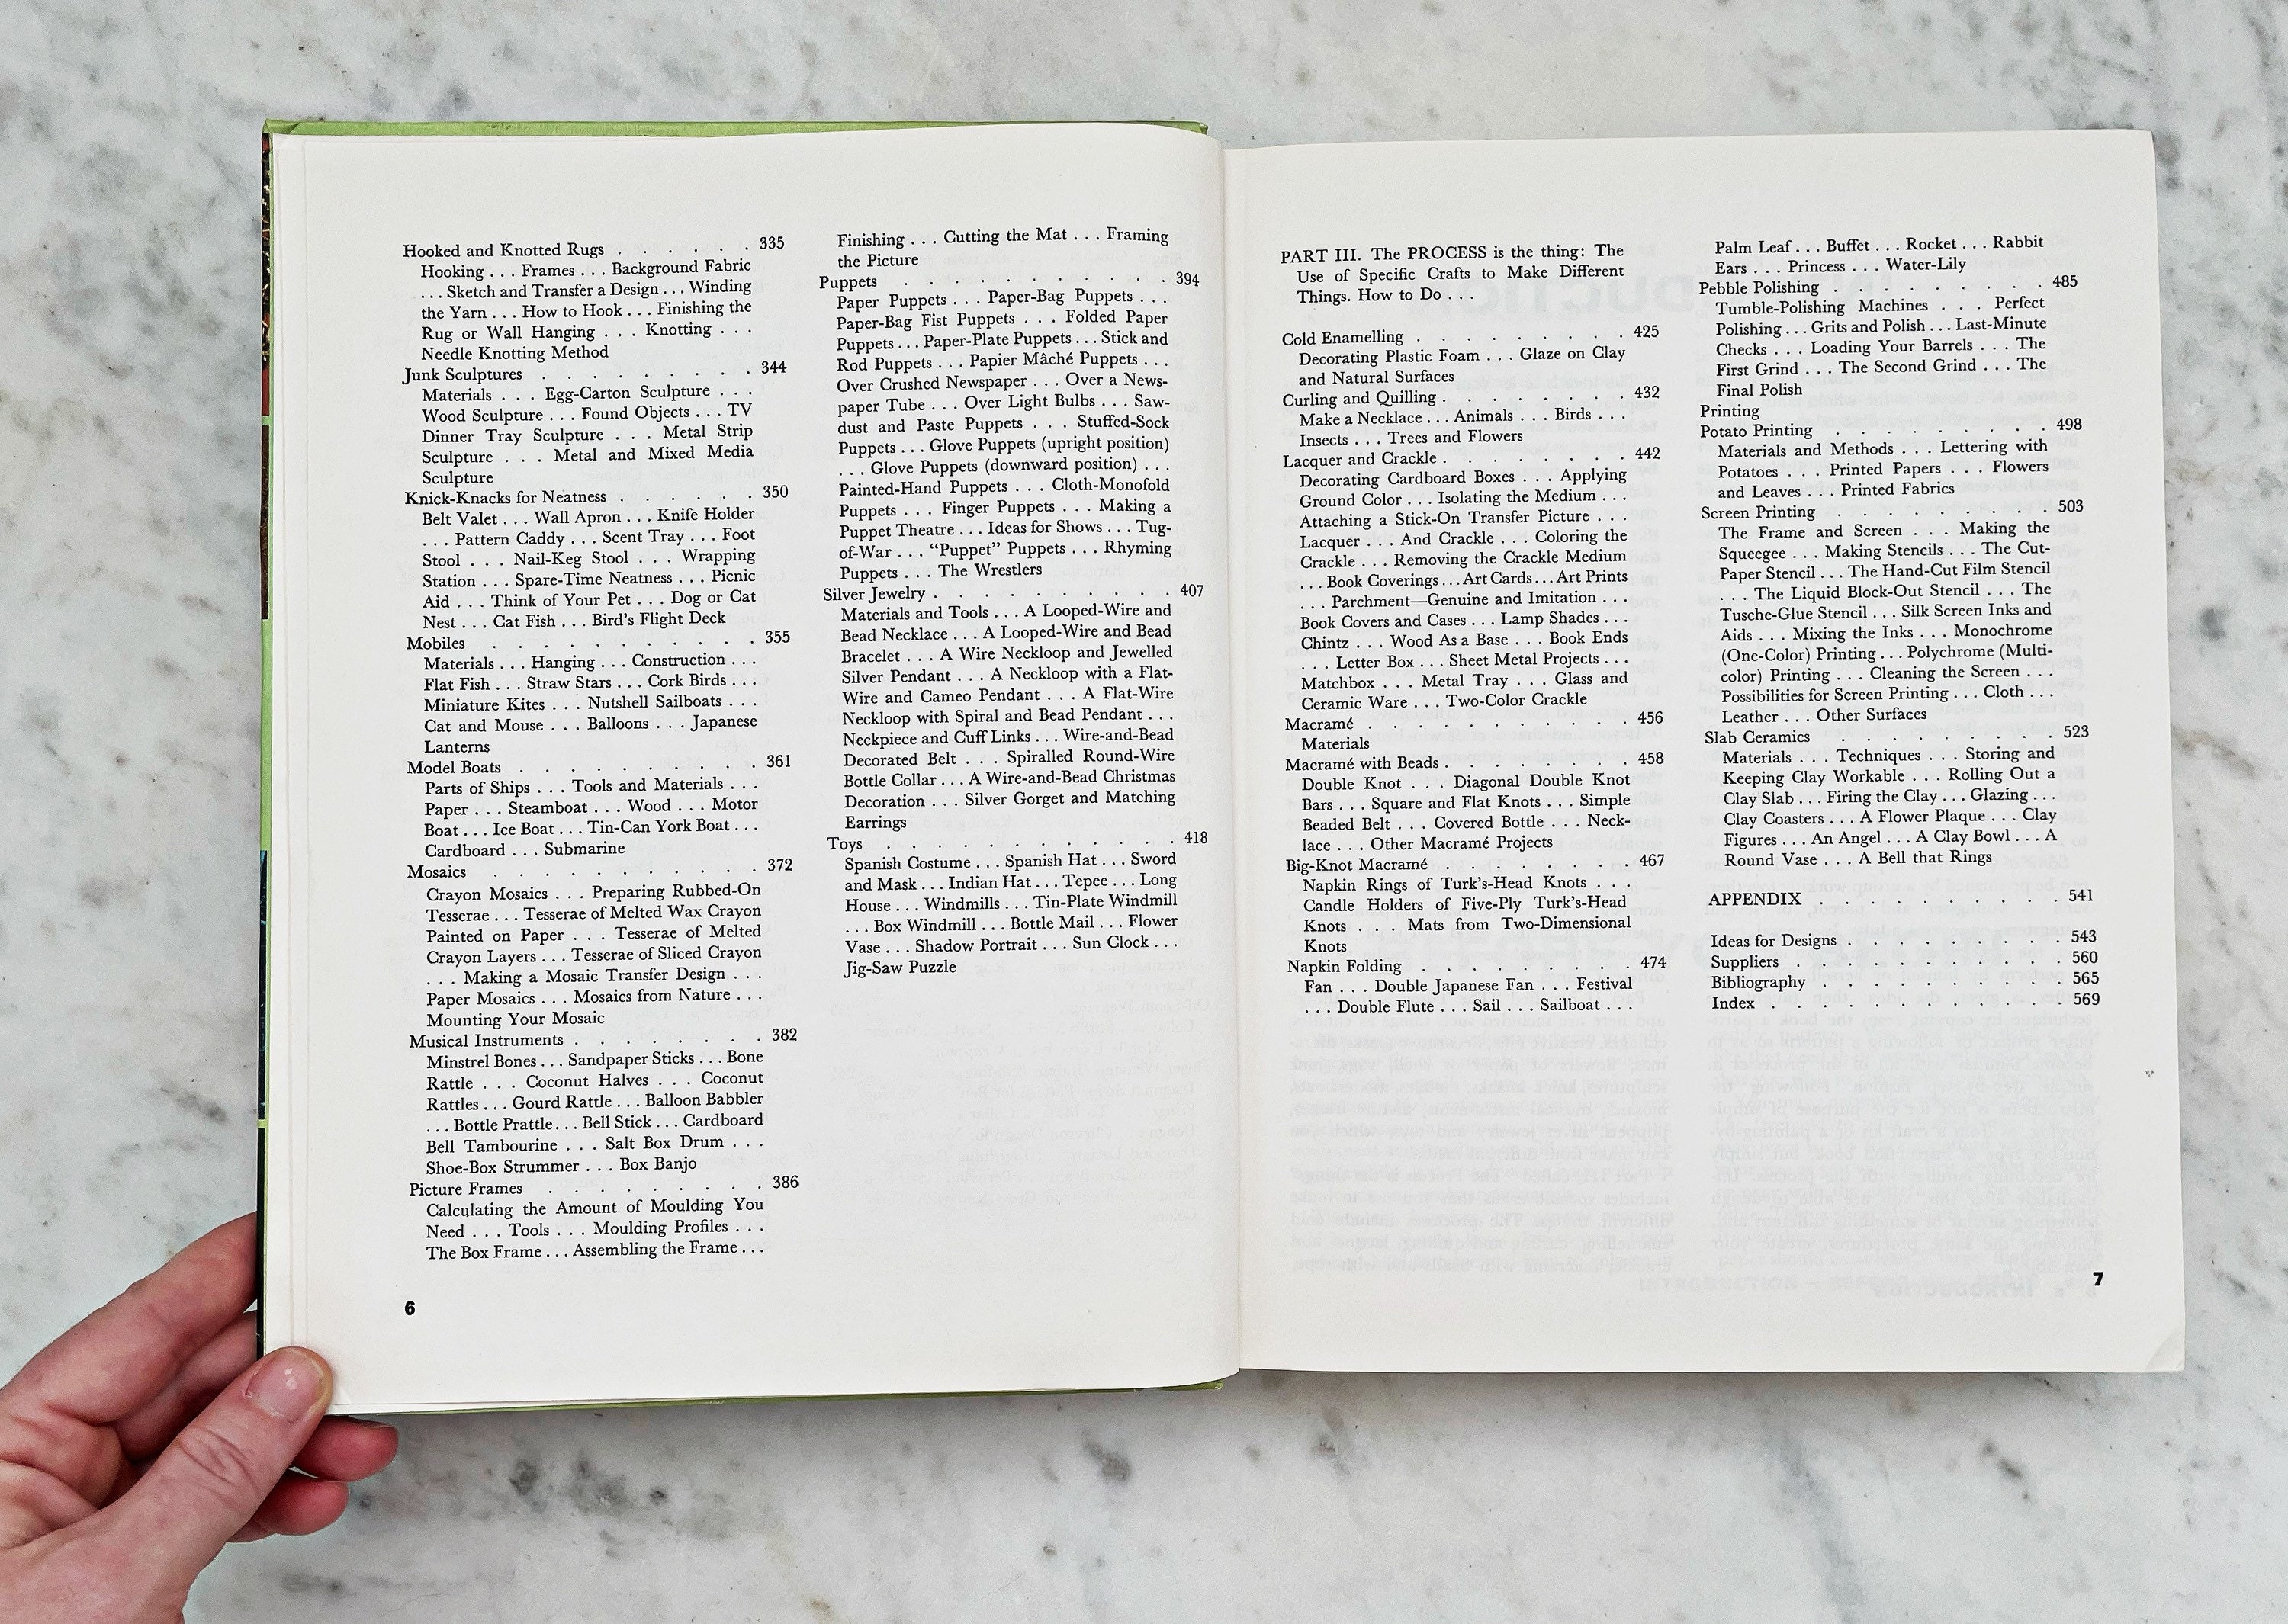 Hooked and Knotted Rugs . . . . . . 335
Hooking . . . Frames . . . Background Fabric
. . . Sketch and Transfer a Design . . . Winding
the Yarn . . . How to Hook . . . Finishing the
Rug or Wall Hanging . . . Knotting . . .
Needle Knotting Method
Junk Sculptures . . . . . . . . . 344
Materials . . . Egg-Carton Sculpture . . .
Wood Sculpture . . . Found Objects . . . TV
Dinner Tray Sculpture . . . Metal Strip
Sculpture . . . Metal and Mixed Media
Sculpture
Knick-Knacks for Neatness . . . . . . 350
Belt Valet . . . Wall Apron . . . Knife Holder
. . . Pattern Caddy . . . Scent Tray . . . Foot
Stool . . . Nail-Keg Stool . . . Wrapping
Station . . . Spare-Time Neatness . . . Picnic
Aid . . . Think of Your Pet . . . Dog or Cat
Nest . . . Cat Fish . . . Bird's Flight Deck
Mobiles . . . . . . . . . . . 355
Materials . . . Hanging . . . Construction . . .
Flat Fish . . . Straw Stars . . . Cork Birds . . .
Miniature Kites . . . Nutshell Sailboats . . .
Cat and Mouse . . . Balloons . . . Japanese
Lanterns
Model Boats . . . . . . . . . . 361
Parts of Ships . . . Tools and Materials . . .
Paper . . . Steamboat . . . Wood . . . Motor
Boat . . . Ice Boat . . . Tin-Can York Boat . . .
Cardboard . . . Submarine
Mosaics . . . . . . . . . . . 372
Crayon Mosaics . . . Preparing Rubbed-On
Tesserae . . . Tesserae of Melted Wax Crayon
Painted on Paper . . . Tesserae of Melted
Crayon Layers . . . Tesserae of Sliced Crayon
. . . Making a Mosaic Transfer Design . . .
Paper Mosaics . . . Mosaics from Nature . . .
Mounting Your Mosaic
Musical Instruments . . . . . . . . 382
Minstrel Bones . . . Sandpaper Sticks . . . Bone
Rattle . . . Coconut Halves . . . Coconut
Rattles . . . Gourd Rattle . . . Balloon Babbler
. . . Bottle Prattle . . . Bell Stick . . . Cardboard
Bell Tambourine . . . Salt Box Drum . . .
Shoe-Box Strummer . . . Box Banjo
Picture Frames . . . . . . . . . 386
Calculating the Amount of Moulding You
Need . . . Tools . . . Moulding Profiles . . .
The Box Frame . . . Assembling the Frame . . .
6
Finishing . . . Cutting the Mat . . . Framing
the Picture
Puppets . . . . . . . . . . . 394
Paper Puppets . . . Paper-Bag Puppets . . .
Paper-Bag Fist Puppets . . . Folded Paper
Puppets . . . Paper-Plate Puppets . . . Stick and
Rod Puppets . . . Papier Mâché Puppets . . .
Over Crushed Newspaper . . . Over a News-
paper Tube . . . Over Light Bulbs . . . Saw-
dust and Paste Puppets . . . Stuffed-Sock
Puppets . . . Glove Puppets (upright position)
. . . Glove Puppets (downward position) . . .
Painted-Hand Puppets . . . Cloth-Monofold
Puppets . . . Finger Puppets . . . Making a
Puppet Theatre . . . Ideas for Shows . . . Tug-
of-War . . . "Puppet" Puppets . . . Rhyming
Puppets . . . The Wrestlers
Silver Jewelry . . . . . . . . . . 407
Materials and Tools . . . A Looped-Wire and
Bead Necklace . . . A Looped-Wire and Bead
Bracelet . . . A Wire Neckloop and Jewelled
Silver Pendant . . . A Neckloop with a Flat-
Wire and Cameo Pendant . . . A Flat-Wire
Neckloop with Spiral and Bead Pendant . . .
Neckpiece and Cuff Links . . . Wire-and-Bead
Decorated Belt . . . Spiralled Round-Wire
Bottle Collar . . . A Wire-and-Bead Christmas
Decoration . . . Silver Gorget and Matching
Earrings
Toys . . . . . . . . . . . . 418
Spanish Costume . . . Spanish Hat . . . Sword
and Mask . . . Indian Hat . . . Tepee . . . Long
House . . . Windmills . . . Tin-Plate Windmill
. . . Box Windmill . . . Bottle Mail . . . Flower
Vase . . . Shadow Portrait . . . Sun Clock . . .
Jig-Saw Puzzle
PART III. The PROCESS is the thing: The
Use of Specific Crafts to Make Different
Things. How to Do . . .
Cold Enamelling . . . . . . . . . 425
Decorating Plastic Foam . . . Glaze on Clay
and Natural Surfaces
Curling and Quilling . . . . . . . . 432
Make a Necklace . . . Animals . . . Birds . . .
Insects . . . Trees and Flowers
Lacquer and Crackle . . . . . . . . 442
Decorating Cardboard Boxes . . . Applying
Ground Color . . . Isolating the Medium . . .
Attaching a Stick-On Transfer Picture . . .
Lacquer . . . And Crackle . . . Coloring the
Crackle . . . Removing the Crackle Medium
. . . Book Coverings . . . Art Cards . . . Art Prints
. . . Parchment—Genuine and Imitation . . .
Book Covers and Cases . . . Lamp Shades . . .
Chintz . . . Wood As a Base . . . Book Ends
. . . Letter Box . . . Sheet Metal Projects . . .
Matchbox . . . Metal Tray . . . Glass and
Ceramic Ware . . . Two-Color Crackle
Macramé . . . . . . . . . . . 456
Materials
Macramé with Beads . . . . . . . . 458
Double Knot . . . Diagonal Double Knot
Bars . . . Square and Flat Knots . . . Simple
Beaded Belt . . . Covered Bottle . . . Neck-
lace . . . Other Macramé Projects
Big-Knot Macramé . . . . . . . . 467
Napkin Rings of Turk's-Head Knots . . .
Candle Holders of Five-Ply Turk's-Head
Knots . . . Mats from Two-Dimensional
Knots
Napkin Folding . . . . . . . . . 474
Fan . . . Double Japanese Fan . . . Festival
. . . Double Flute . . . Sail . . . Sailboat . . .
Palm Leaf . . . Buffet . . . Rocket . . . Rabbit
Ears . . . Princess . . . Water-Lily
Pebble Polishing . . . . . . . . . 485
Tumble-Polishing Machines . . . Perfect
Polishing . . . Grits and Polish . . . Last-Minute
Checks . . . Loading Your Barrels . . . The
First Grind . . . The Second Grind . . . The
Final Polish
Printing
Potato Printing . . . . . . . . . 498
Materials and Methods . . . Lettering with
Potatoes . . . Printed Papers . . . Flowers
and Leaves . . . Printed Fabrics
Screen Printing . . . . . . . . . 503
The Frame and Screen . . . Making the
Squeegee . . . Making Stencils . . . The Cut-
Paper Stencil . . . The Hand-Cut Film Stencil
. . . The Liquid Block-Out Stencil . . . The
Tusche-Glue Stencil . . . Silk Screen Inks and
Aids . . . Mixing the Inks . . . Monochrome
(One-Color) Printing . . . Polychrome (Multi-
color) Printing . . . Cleaning the Screen . . .
Possibilities for Screen Printing . . . Cloth . . .
Leather . . . Other Surfaces
Slab Ceramics . . . . . . . . . 523
Materials . . . Techniques . . . Storing and
Keeping Clay Workable . . . Rolling Out a
Clay Slab . . . Firing the Clay . . . Glazing . . .
Clay Coasters . . . A Flower Plaque . . . Clay
Figures . . . An Angel . . . A Clay Bowl . . . A
Round Vase . . . A Bell that Rings
APPENDIX . . . . . . . . . . 541
Ideas for Designs . . . . . . . . . 543
Suppliers . . . . . . . . . . . 560
Bibliography . . . . . . . . . . 565
Index . . . . . . . . . . . . 569
7